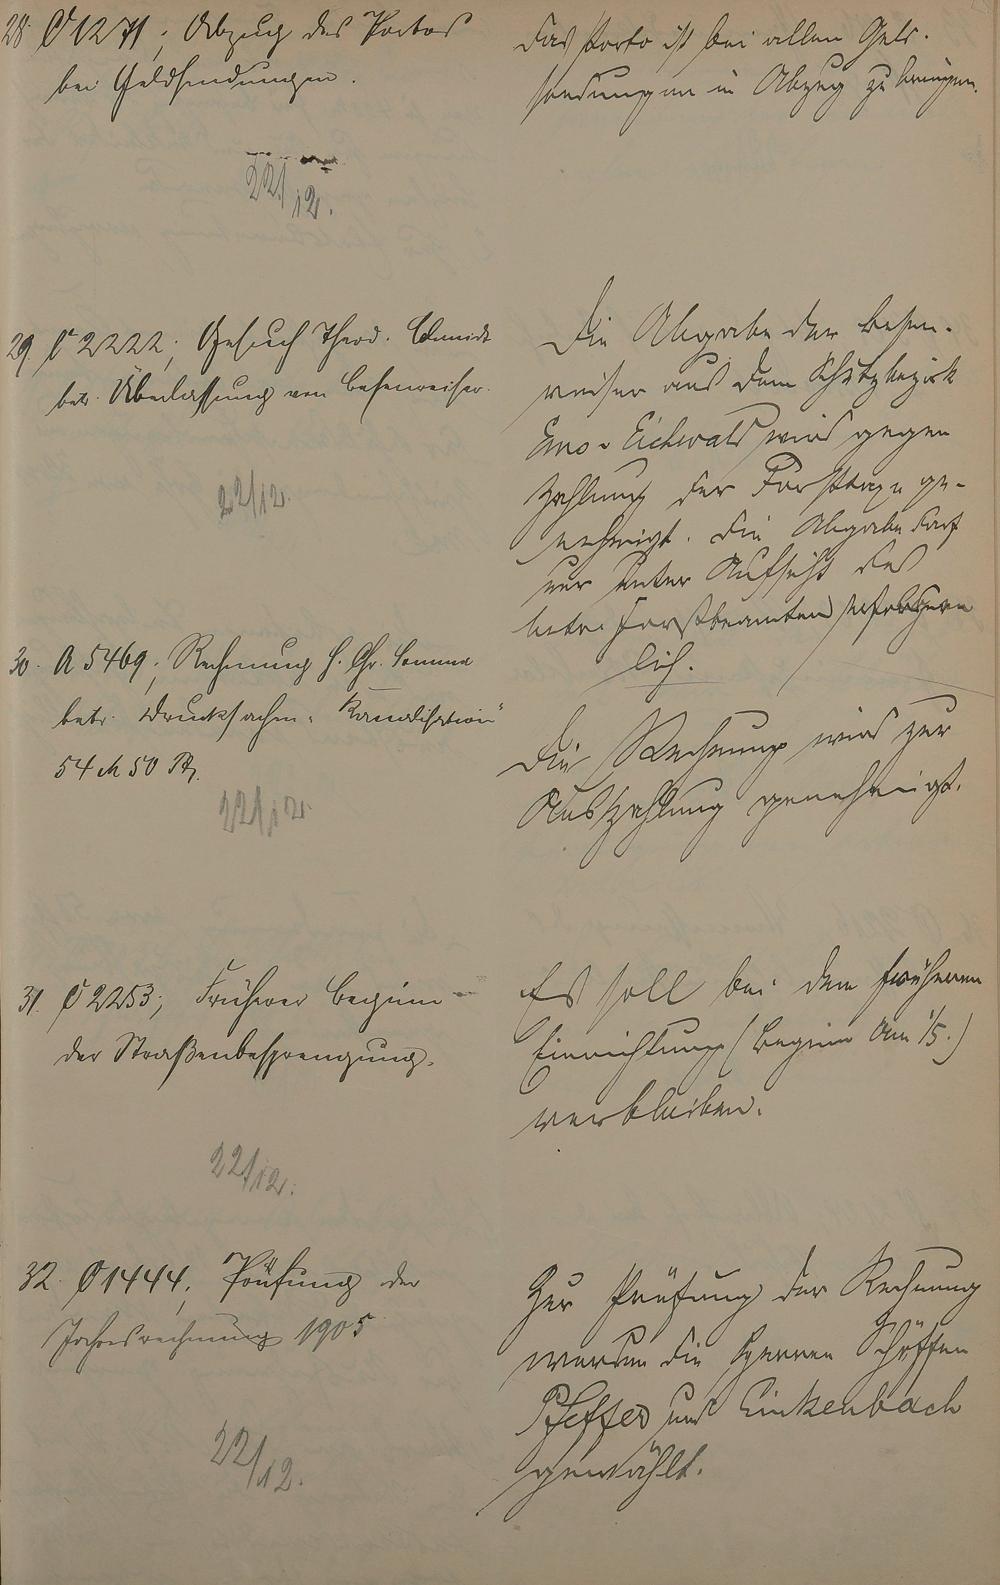 28. C 1271; Abzug des Portos
bei Geldsendungen.
22/12.
Das Porto ist bei allen Geld-
sendungen in Abzug zu bringen.
29. C 2222; Gesuch Theod. Schmidt
betr. Überlassung von Besenreiser.
22/12.
Die Abgabe der Besen-
reiser aus dem Schutzbezirk
Ems-Eichwald wird gegen
Zahlung der Forsttaxe ge-
nehmigt. Die Abgabe darf
nur unter Aufsicht des
betr. Forstbeamten erfolgen
30. A 5469; Rechnung H. Chr. Sommer
betr. Drucksachen "Kanalisation"
54 M 50 Pf.
22/12.
Die Rechnung wird zur
Auszahlung genehmigt.
31. C 2253; Früherer Beginn
der Straßenbesprengung.
22/12.
Es soll bei dem früheren
Einrichtung (Beginn am 1/5.)
verbleiben.
32. C 1444; Prüfung der
Jahresrechnung 1905
22/12.
Zur Prüfung der Rechnung
werden die Herren Schöffen
Pfeffer und Linkenbach
gewählt.